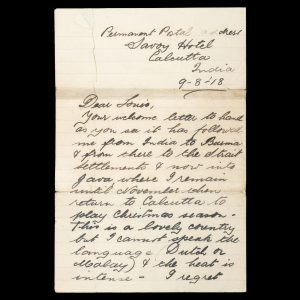 Permanent Postal address
Savoy Hotel
Calcutta
India
9-8-18
Dear Louis,
Your welcome letter to hand
as you see it has followed
me from India to Burma
& from there to the Strait
Settlements & now into
Java where I remain
until November then
return to Calcutta to
play Christmas season -
This is a lovely country
but I cannot speak the
language (Dutch or
Malay) & the heat is
intense - I regret